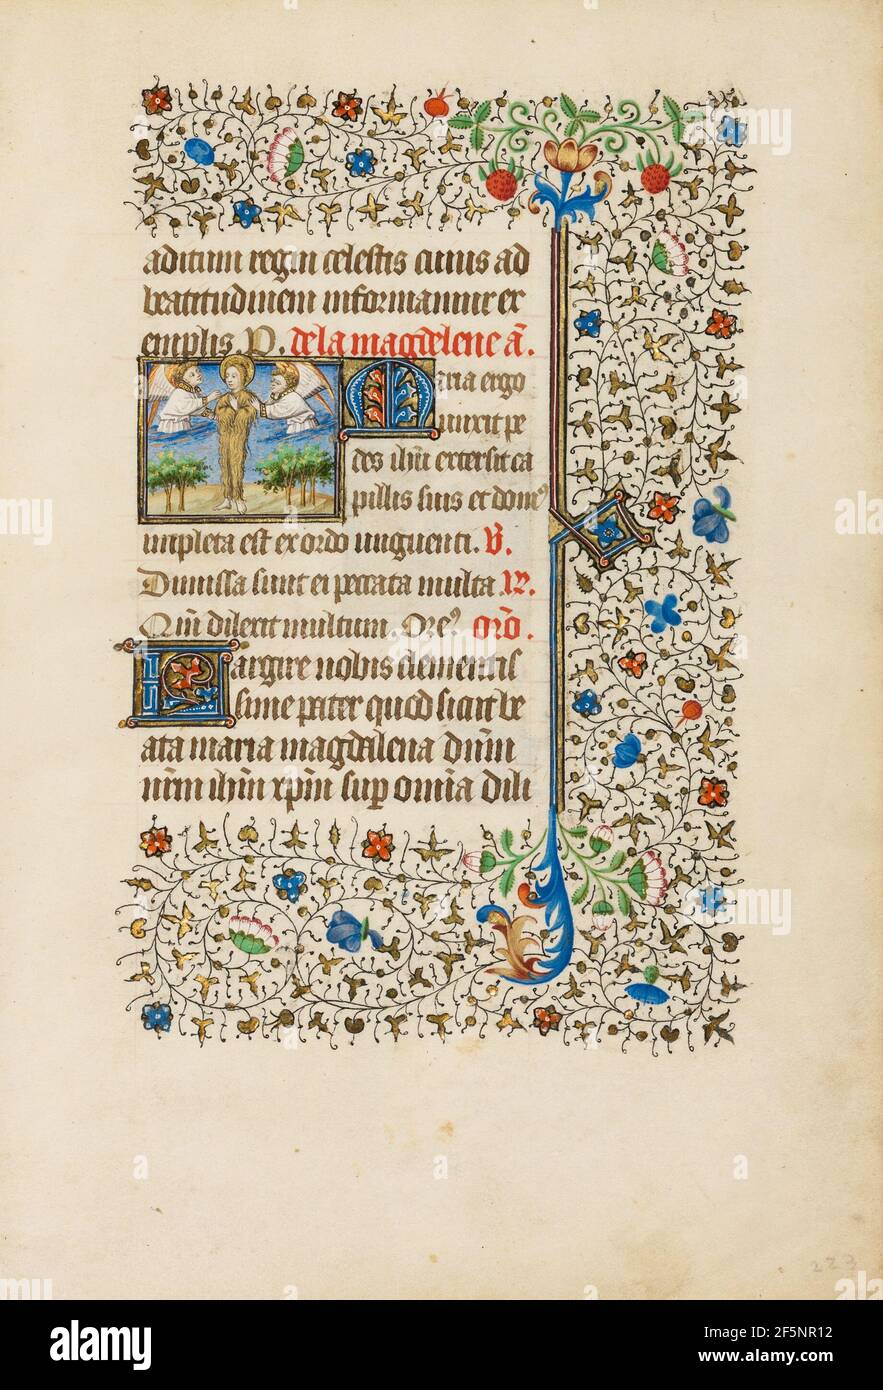 aditum regni celestis cuius ad
beatitudinem informamur ex
emplis. P. de la magdelene añ.
Maria ergo
unxit pe
des ihũ extersit ca
pillis suis et dom⁹
impleta est ex odo unguenti. V.
Dimissa sunt ei peccata multa. R.
Qm̃ dilexit multum. Ore⁹. orõ.
Largire nobis clementis
sime pater quod sicut be
ata maria magdalena dñm
nr̃m ihm̃ xpm̃ sup̱ omĩa dili
223
alamy
Image ID: 2F5NR12
www.alamy.com